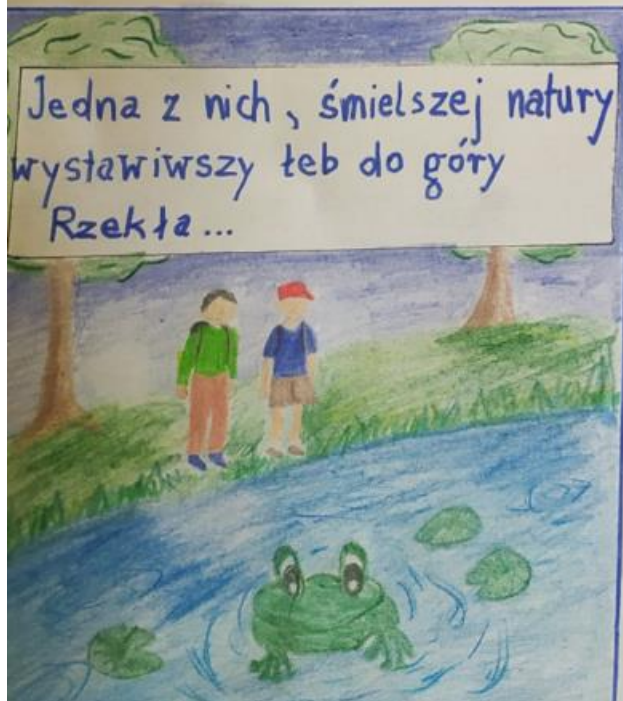 Jedna z nich, śmielszej natury
wystawiwszy łeb do góry
Rzekła...